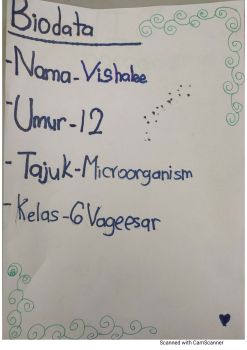 Biodata
-Nama-Vishalee
-Umur-12
-Tajuk-Microorganism
-Kelas-6 Vageesar
Scanned with CamScanner